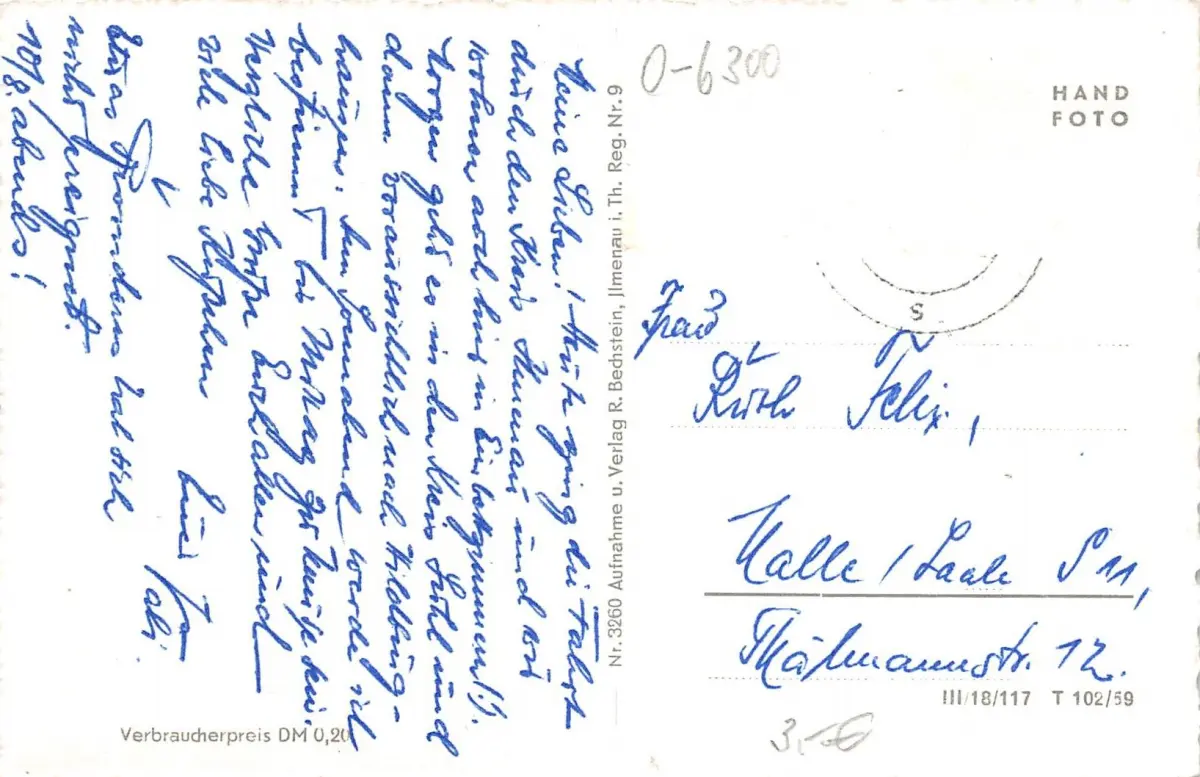 Meine Lieben! Heute ging die Fahrt
durch den Kreis Ilmenau und wir
wohnen auch hier in
Morgen geht es in den Kreis Suhl und
dann voraussichtlich nach Hildburg-
hausen. Am Sonnabend werde ich
bestimmt bis Mittag zu Hause sein.
Herzliche Grüße Euch allen und
viele liebe Küßchen
Euer
Etwas Besonderes hat sich
nicht ereignet.
10/8. abends!
Nr. 3260 Aufnahme u. Verlag R. Bechstein, Jlmenau i. Th. Reg. Nr. 9
Verbraucherpreis DM 0,20
O-6300
HAND
FOTO
S
Frau
Ruth Felix,
Halle/Saale S 11,
Thälmannstr. 12.
III/18/117 T 102/59
3,-€